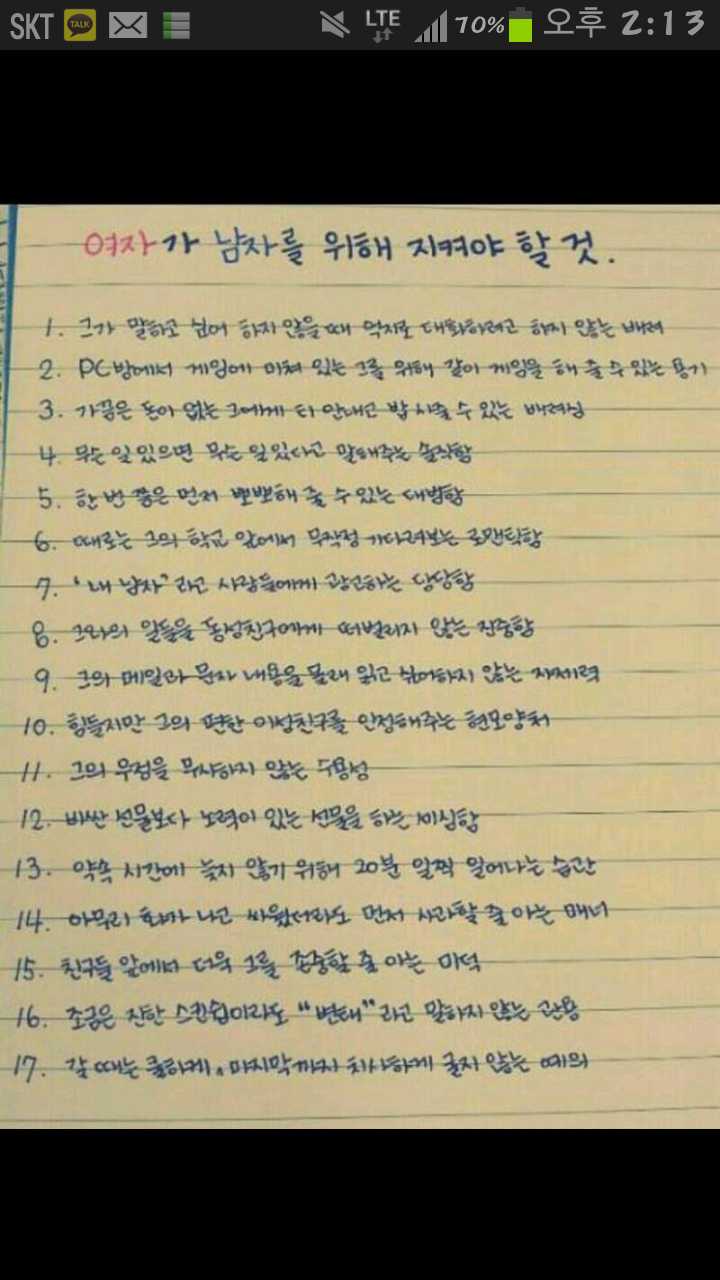 SKT TALK LTE 70% 오후 2:13
여자가 남자를 위해 지켜야 할 것.
1. 그가 말하고 싶어 하지 않을 때 억지로 대화하려고 하지 않는 배려
2. PC방에서 게임에 미쳐 있는 그를 위해 같이 게임을 해 줄 수 있는 용기
3. 가끔은 돈이 없는 그에게 티 안내고 밥 사줄 수 있는 배려심
4. 무슨 일 있으면 무슨 일 있다고 말해주는 솔직함
5. 한 번 쯤은 먼저 뽀뽀해 줄 수 있는 대범함
6. 때로는 그의 학교 앞에서 무작정 기다려보는 로맨틱함
7. "내 남자"라고 사람들에게 광고하는 당당함
8. 그와의 일들을 동성친구에게 떠벌리지 않는 진중함
9. 그의 메일과 문자 내용을 몰래 읽고 싶어하지 않는 자제력
10. 힘들지만 그의 편한 이성친구를 인정해주는 현모양처
11. 그의 우정을 무시하지 않는 수용성
12. 비싼 선물보다 노력이 있는 선물을 하는 세심함
13. 약속 시간에 늦지 않기 위해 20분 일찍 일어나는 습관
14. 아무리 화가 나고 싸웠더라도 먼저 사과할 줄 아는 매너
15. 친구들 앞에서 더욱 그를 존중할 줄 아는 미덕
16. 조금은 진한 스킨쉽이라도 "변태"라고 말하지 않는 관용
17. 갈 때는 쿨하게. 마지막까지 치사하게 굴지 않는 예의